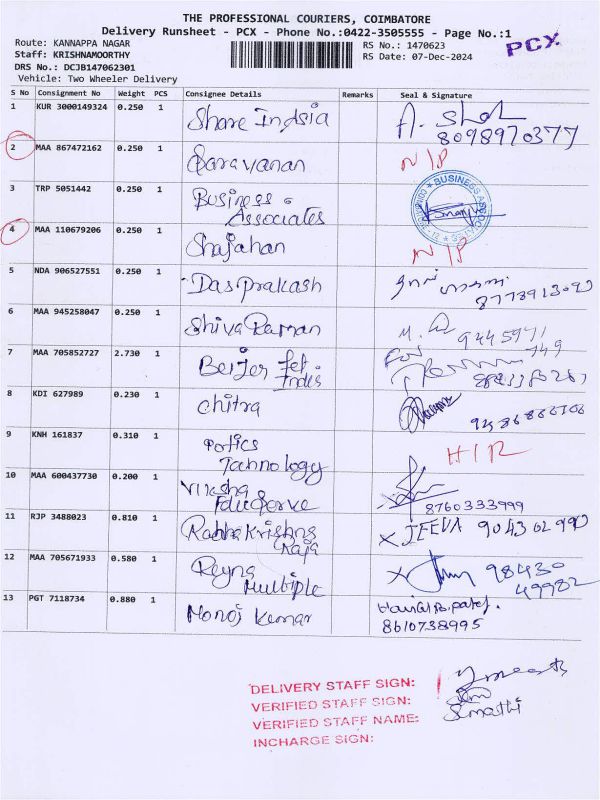 THE PROFESSIONAL COURIERS, COIMBATORE
Delivery Runsheet - PCX - Phone No.:0422-3505555 - Page No.:1
Route: KANNAPPA NAGAR RS No.: 1470623
PCX
Staff: KRISHNAMOORTHY RS Date: 07-Dec-2024
DRS No.: DCJB147062301
Vehicle: Two Wheeler Delivery
S No Consignment No Weight PCS Consignee Details Remarks Seal & Signature
1 KUR 3000149324 0.250 1 Share Indsia A. Shok
8098970377
2 MAA 867472162 0.250 1 Saravanan N/P
3 TRP 5051442 0.250 1 Business
Associates
BUSINESS ASSOCIATES
4 MAA 110679206 0.250 1 Shajahan N/P
5 NDA 906527551 0.250 1 Dasprakash
6 MAA 945258047 0.250 1 Shiva Raman
9445971
749
7 MAA 705852727 2.730 1 Beijer Jet For
Indis
8 KDI 627989 0.230 1 Chitra
9 KNH 161837 0.310 1 Portics H/R
Tachnology
10 MAA 600437730 0.200 1 Viksha
EduServe 8760333999
11 RJP 3488023 0.810 1 Radha Krishna X JEEVA 90430 2990
Raja
12 MAA 705671933 0.580 1 Reyna X 98430
Multiple 49982
13 PGT 7118734 0.880 1 Manoj Kumar
8610738995
DELIVERY STAFF SIGN:
VERIFIED STAFF SIGN:
VERIFIED STAFF NAME: Sumathi
INCHARGE SIGN: